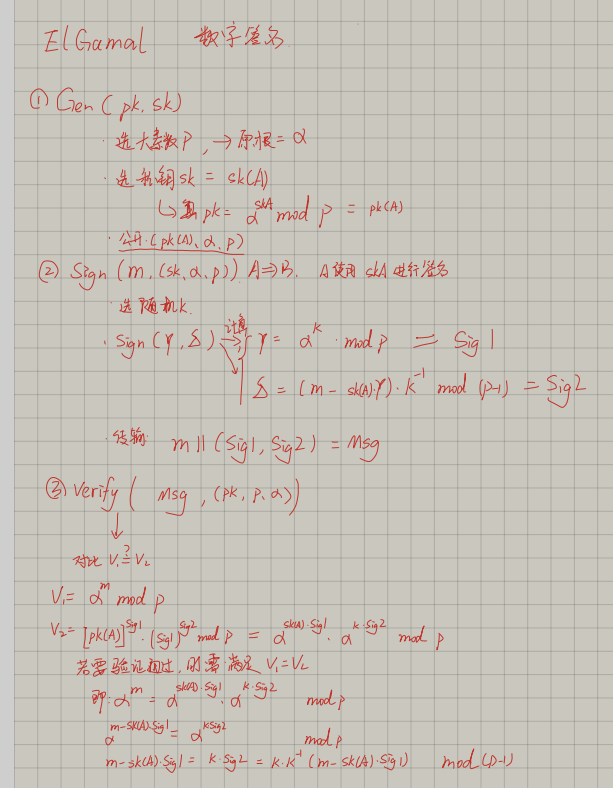 ElGamal 数字签名
① Gen(pk, sk)
· 选大素数P, → 原根 = α
· 选私钥sk = sk(A)
↳ pk = α^skA mod p = pk(A)
· 公开·(pk(A), α, p)
② Sign (m, (sk, α, p)) A⇒B. A使用 skA 进行签名
· 选随机k.
· Sign(γ, δ) 计算→ { γ = α^k · mod p = Sig1
δ = (m - sk(A)·γ)·k^-1 mod (p-1) = Sig2
· 传输: m || (Sig1, Sig2) = Msg
③ Verify ( Msg, (pk, p, α))
↓
对比 V₁ ≟ V₂
V₁ = α^m mod p
V₂ = [pk(A)]^Sig1 · (Sig1)^Sig2 mod p = α^sk(A)·Sig1 · α^k·Sig2 mod p
若要验证通过, 则需满足 V₁=V₂
即: α^m = α^sk(A)·Sig1 · α^k·Sig2 mod p
α^m-sk(A)·Sig1 = α^k·Sig2 mod p
m-sk(A)·Sig1 = k·Sig2 = k·k^-1 (m-sk(A)·Sig1) mod (p-1)